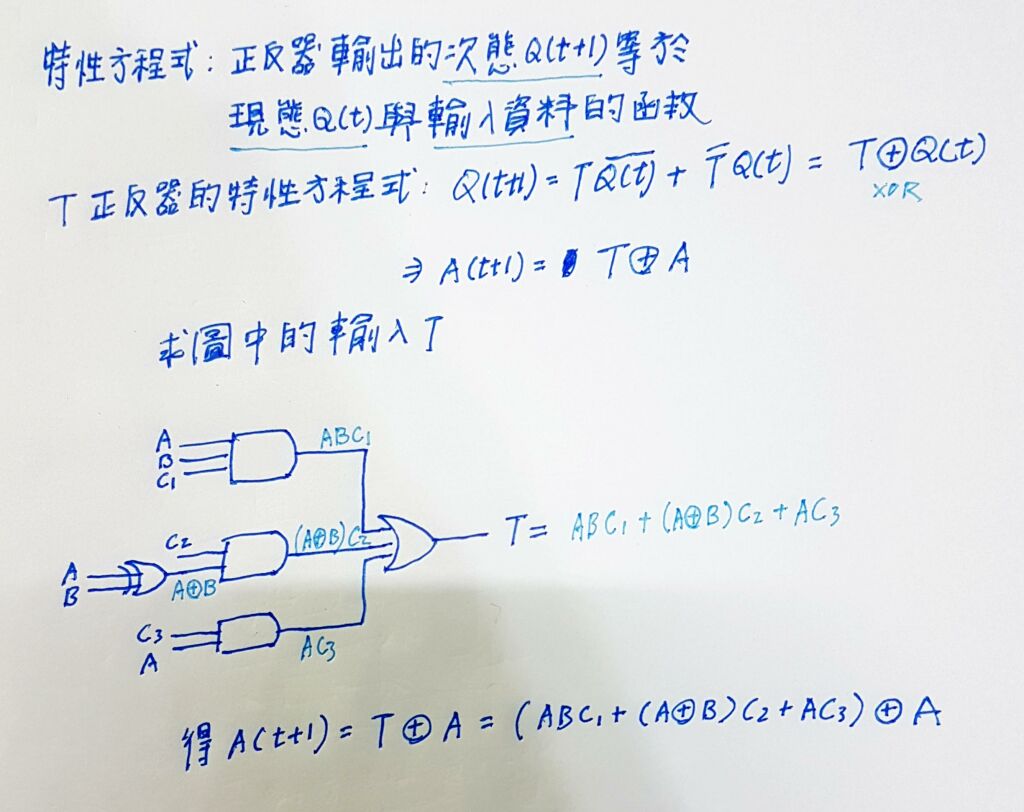 特性方程式：正反器輸出的次態Q(t+1)等於
現態Q(t)與輸入資料的函數
T正反器的特性方程式：Q(t+1) = T\overline{Q(t)} + \overline{T}Q(t) = T⊕Q(t)
XOR
⇒ A(t+1) = T⊕A
求圖中的輸入T
A
B
C₁
ABC₁
C₂
A
B
A⊕B
(A⊕B)C₂
T = ABC₁ + (A⊕B)C₂ + AC₃
C₃
A
AC₃
得 A(t+1) = T⊕A = (ABC₁ + (A⊕B)C₂ + AC₃)⊕A